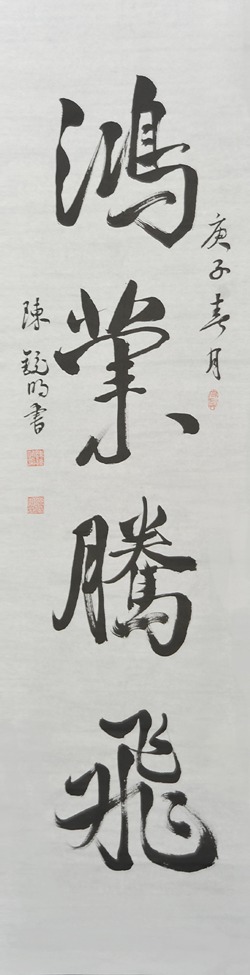 庚子春月
鴻業騰飛
陳鏡明書